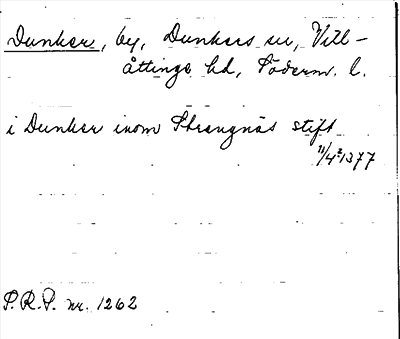 Dunker, by, Dunkers sn, Vill-
åttinge hd, Söderm. l.
i Dunker inom Strengnäs stift
11/4 1377
S.R.P. nr. 1262